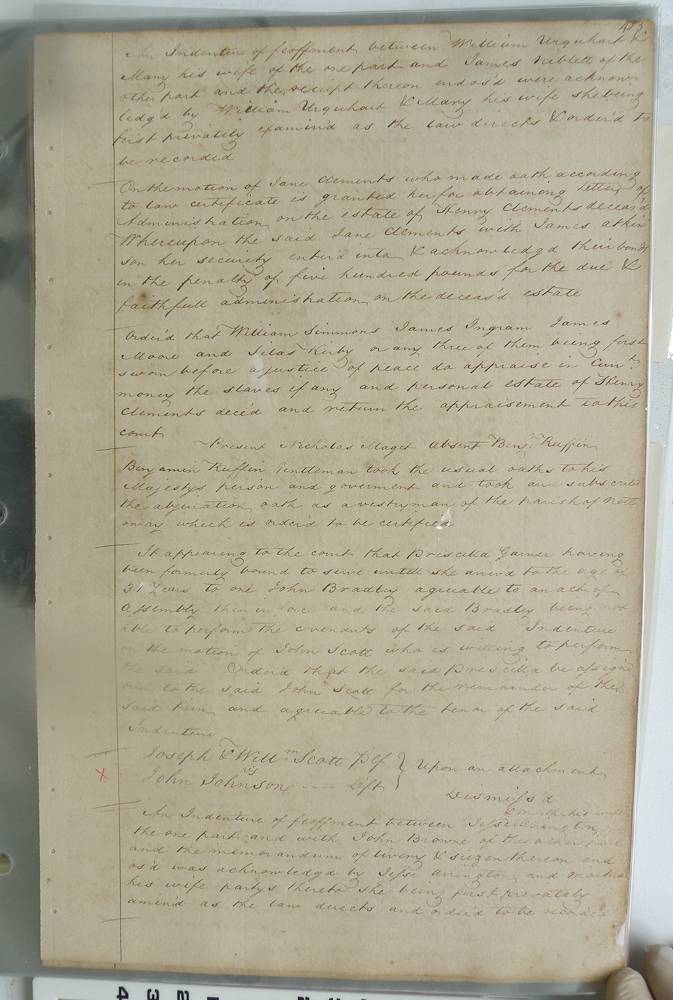 An Indenture of feoffment between William Urquhart &
Mary his wife of the one part and James Neblett of the
other part and the receipt thereon endos'd were acknow
ledg'd by William Urquhart & Mary his wife she being
first privately examin'd as the law directs & order'd to
be recorded
On the motion of Jane Clements who made oath according
to law certificate is granted her for obtaining letters of
Administration on the estate of Henry Clements deceas'd
Whereupon the said Jane Clements with James atkin
son her security enterd into & acknowledg'd their bond
in the penalty of five hundred pounds for the due &
faithfull administration on the deceas'd estate
Order'd that William Simmons James Ingram James
Moore and Silas Kirby or any three of them being first
sworn before a justice of peace do appraise in Curr.t
money the slaves if any and personal estate of Henry
Clements deced and return the appraisement to this
court
Present Nicholas Maget absent Benj.n Ruffin
Benjamin Ruffin Gentleman took the usual oaths to his
Majestys person and goverment and took and subscribd
the abjuration oath as a vestryman of the parish of Nott
oway which is orderd to be certified
It appearing to the court that Priscilla Garner having
been formerly bound to serve untill she arriv'd to the age of
31 years to one John Bradley agreable to an act of
assembly then in force and the said Bradley being not
able to perform the covenants of the said Indenture
on the motion of John Scott who is willing to perform
the said Order'd that the said Priscilla be assign'd
over to the said John Scott for the remainder of the
said term and agreeable to the tenor of the said
Indenture
Joseph & Will.m Scott Plf } Upon an attachment
John Johnson ---- Deft } Dismiss'd
An Indenture of feoffment between Jesse Arrington & his wife
the one part and with John Browne of the other part
and the memorandum of livery & siezen thereon end
os'd was acknowledg'd by Jesse arrington and
his wife partys thereto she being first privately
amin'd as the law directs and orderd to be recorded
4 3 2 1